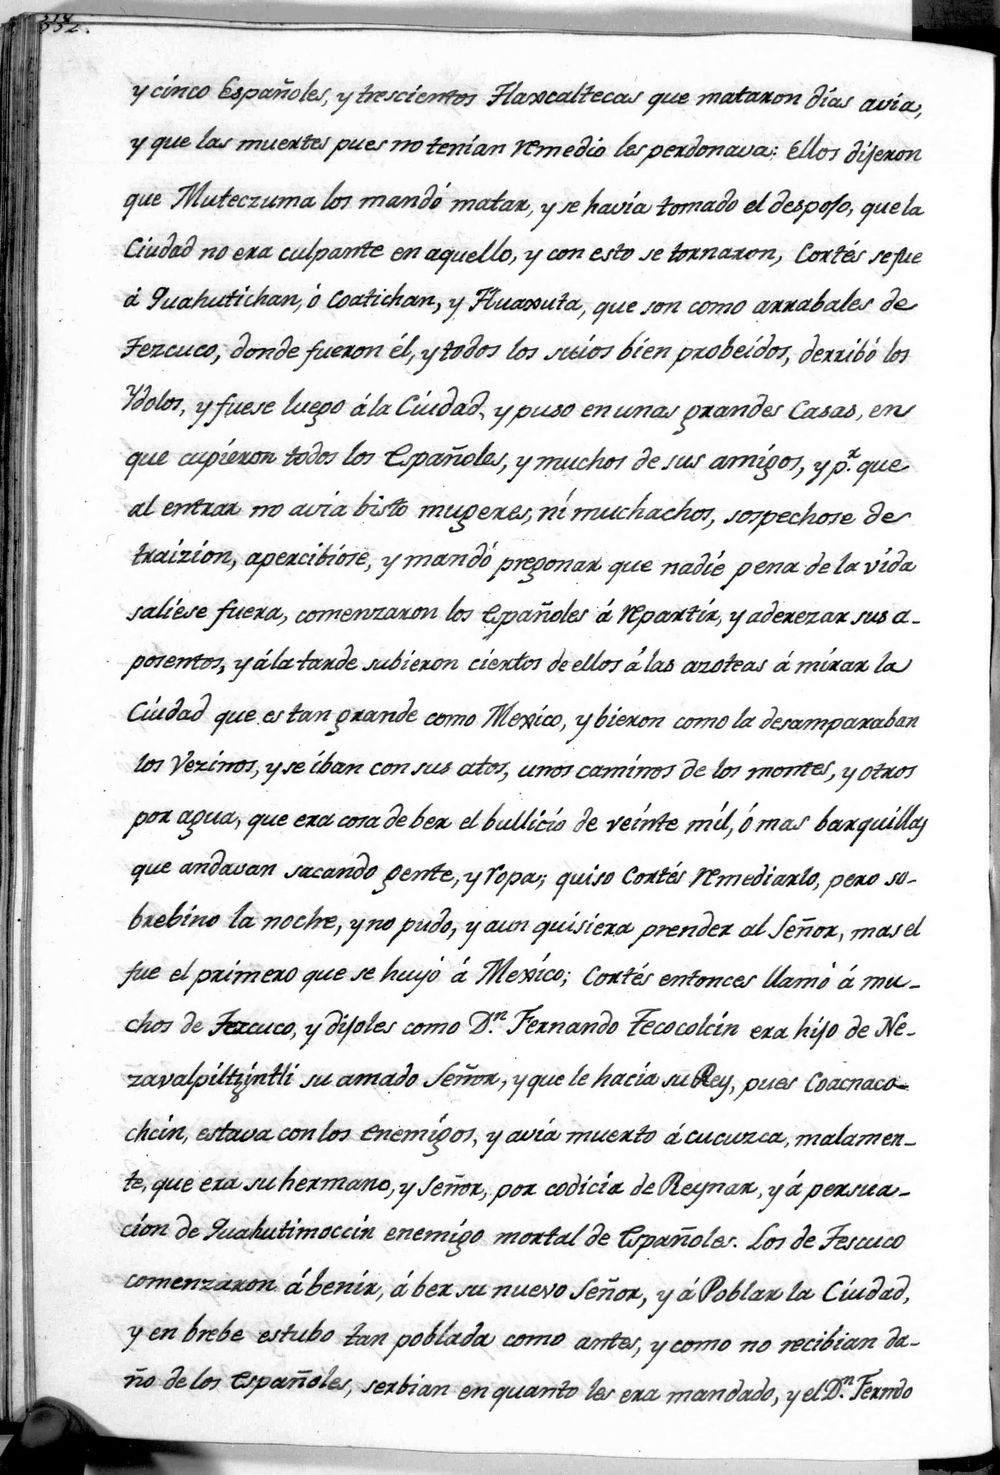 332.
y cinco Españoles, y trescientos Tlaxcaltecas que mataron dias avia,
y que las muertes pues no tenian remedio les perdonava: Ellos dijeron
que Muteczuma los mandó matar, y se havia tomado el despojo, que la
Ciudad no era culpante en aquello, y con esto se tornaron, Cortés se fue
á Quahutichan, ó Coatichan, y Huaxuta, que son como arrabales de
Tezcuco, donde fueron él, y todos los suios bien probeidos, derribó los
Ydolos, y fuese luego á la Ciudad, y puso en unas grandes Casas, en
que cupieron todos los Españoles, y muchos de sus amigos, y p.r que
al entrar no avia bisto mugeres, ni muchachos, sospechose de
traizion, apercibiose, y mandó pregonar que nadie pena de la vida
saliese fuera, comenzaron los Españoles á repartir, y aderezar sus a-
posentos, y á la tarde subieron ciertos de ellos á las azoteas á mirar la
Ciudad que es tan grande como Mexico, y bieron como la desamparaban
los Vezinos, y se iban con sus atos, unos caminos de los montes, y otros
por agua, que era cosa de ber el bullicio de veinte mil, ó mas barquillas
que andavan sacando gente, y ropa; quiso Cortés remediarlo, pero so-
brebino la noche, y no pudo, y aun quisiera prender al Señor, mas el
fue el primero que se huyó á Mexico; Cortés entonces llamó á mu-
chos de Tezcuco, y dijoles como D.n Fernando Tecocolcin era hijo de Ne-
zavalpiltzintli su amado Señor, y que le hacia su Rey, pues Coacnaco-
chcin, estava con los enemigos, y avia muerto á cucuzca, malamen-
te, que era su hermano, y Señor, por codicia de Reynar, y á persua-
cion de Quahutimoccin enemigo mortal de Españoles. Los de Tescuco
comenzaron á benir, á ber su nuevo Señor, y á Poblar la Ciudad,
y en brebe estubo tan poblada como antes, y como no recibian da-
ño de los Españoles, serbian en quanto les era mandado, y el D.n Ferndo